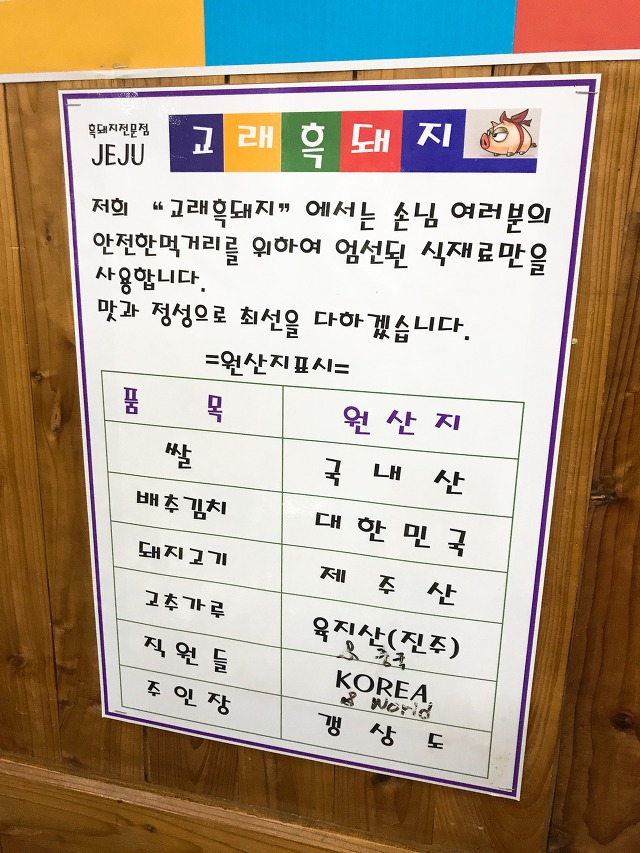 흑돼지전문점
JEJU
고래흑돼지
저희 "고래흑돼지" 에서는 손님 여러분의
안전한먹거리를 위하여 엄선된 식재료만을
사용합니다.
맛과 정성으로 최선을 다하겠습니다.
=원산지표시=
품 목 원 산 지
쌀 국 내 산
배추김치 대 한 민 국
돼지고기 제 주 산
고추가루 육지산(진주)
& 중국
직 원 들 KOREA
& World
주 인 장 갱 상 도